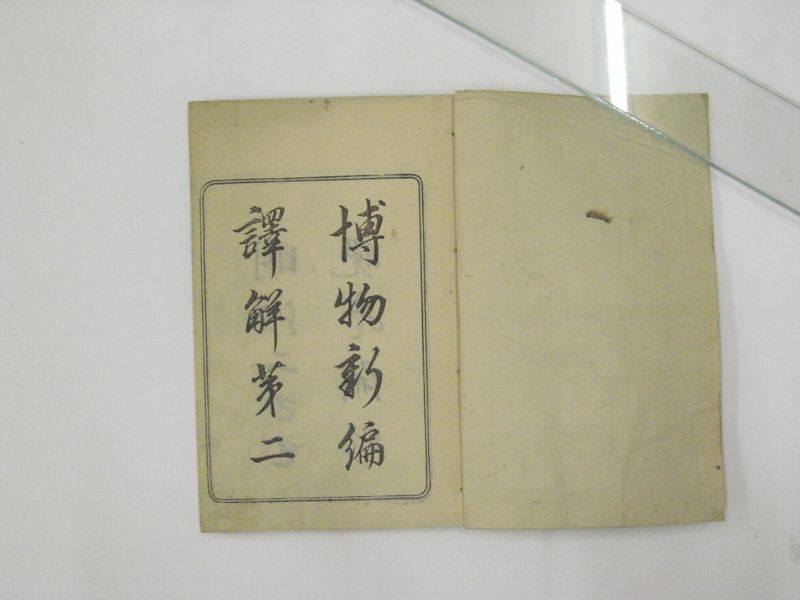 博物新編
譯解第二